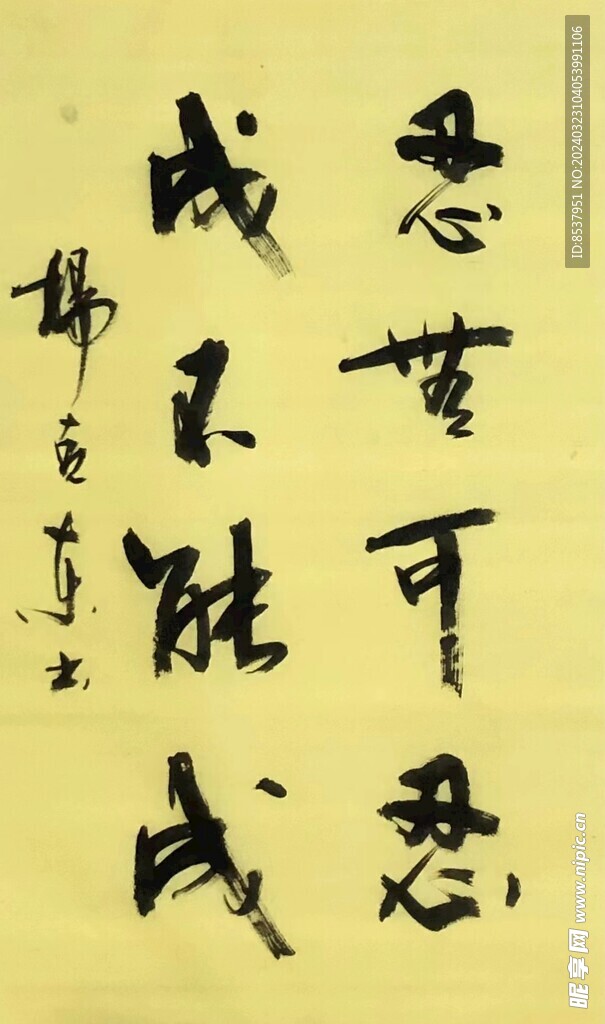 忍無可忍
成不能成
楊克東书
ID:8537951 NO:20240323104053991106
昵享网 www.nipic.cn